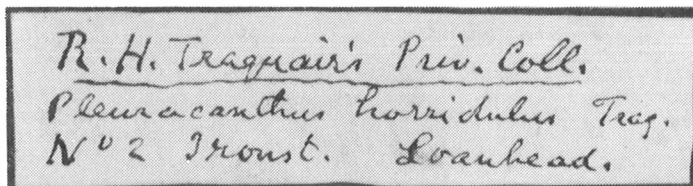 R. H. Traquair's Priv. Coll.
Pleuracanthus horridulus Traq.
No 2 Ironst. Loanhead.